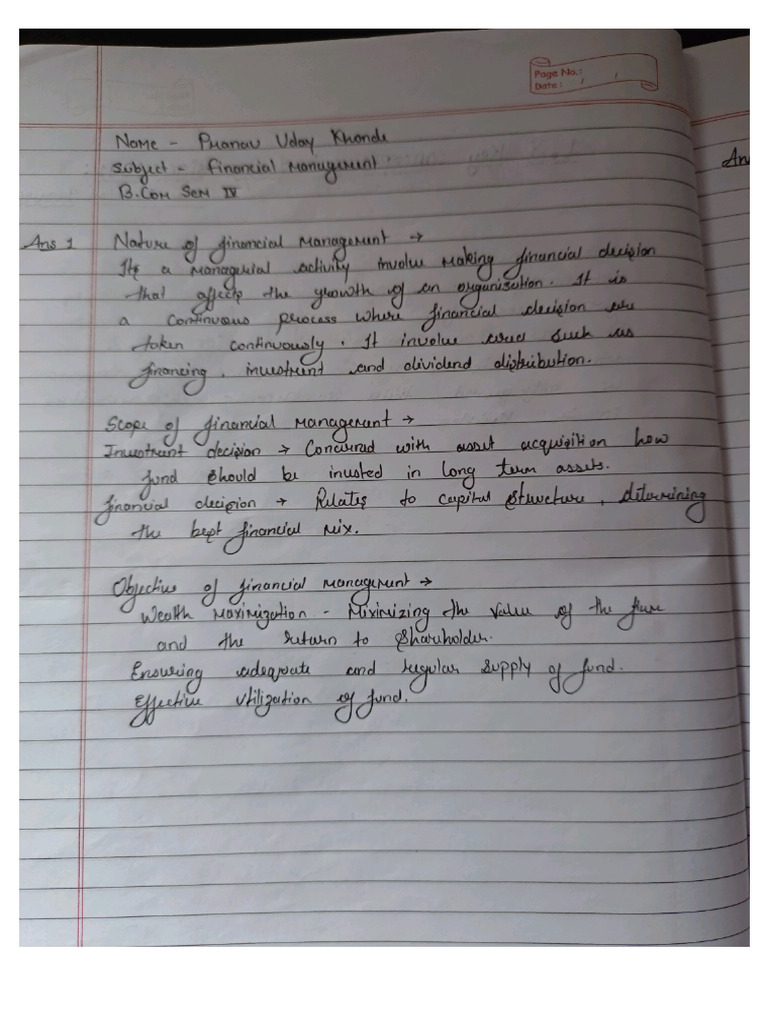 Page No.:
Date: / /
Name - Pranav Uday Khonde
Subject - Financial Management
B.Com Sem IV
An
Ans 1 Nature of financial Management →
Its a Managerial activity involve making financial decision
that affects the growth of an organisation. It is
a continuous process where financial decision are
taken continuously. It involve areas such as
financing, investment and dividend distribution.
Scope of financial Management →
Investment decision → Concerned with asset acquisition how
fund should be invested in long term assets.
financial decision → Relates to capital structure, determining
the best financial mix.
Objective of financial management →
Wealth Maximization - Miximizing the value of the firm
and the return to Shareholder.
Ensuring adequate and regular supply of fund.
Effective utilization of fund.